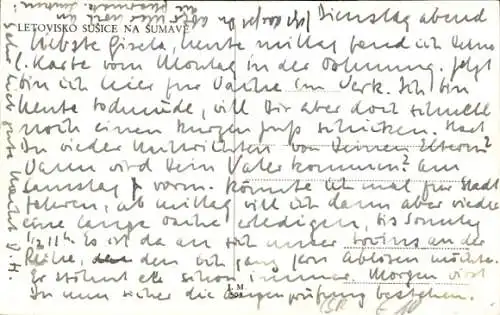 LETOVISKO SUŠICE NA ŠUMAVĚ
Dienstag abend
Liebste Gisela, heute mittag fand ich Deine
l. Karte vom Montag in der Wohnung. Jetzt
bin ich hier zur Wache im Werk. Ich bin
heute todmüde, will Dir aber doch schnell
noch einen kurzen Gruß schicken. Hast
Du wieder Nachrichten von Deinen Eltern?
Wann wird Dein Vater kommen? Am
Samstag vorm. könnte ich mal zur Stadt
fahren, ab mittag will ich dann aber wieder
eine lange Wache erledigen, bis Sonntag
1/2 11 h. Es ist da an sich unser an der
Reihe, den ich ganz gern ablösen möchte.
Er stöhnt eh schon immer. Morgen wirst
Du nun sicher die prüfung bestehen.
Sehr lieb gute Nacht D. H.
J. M.